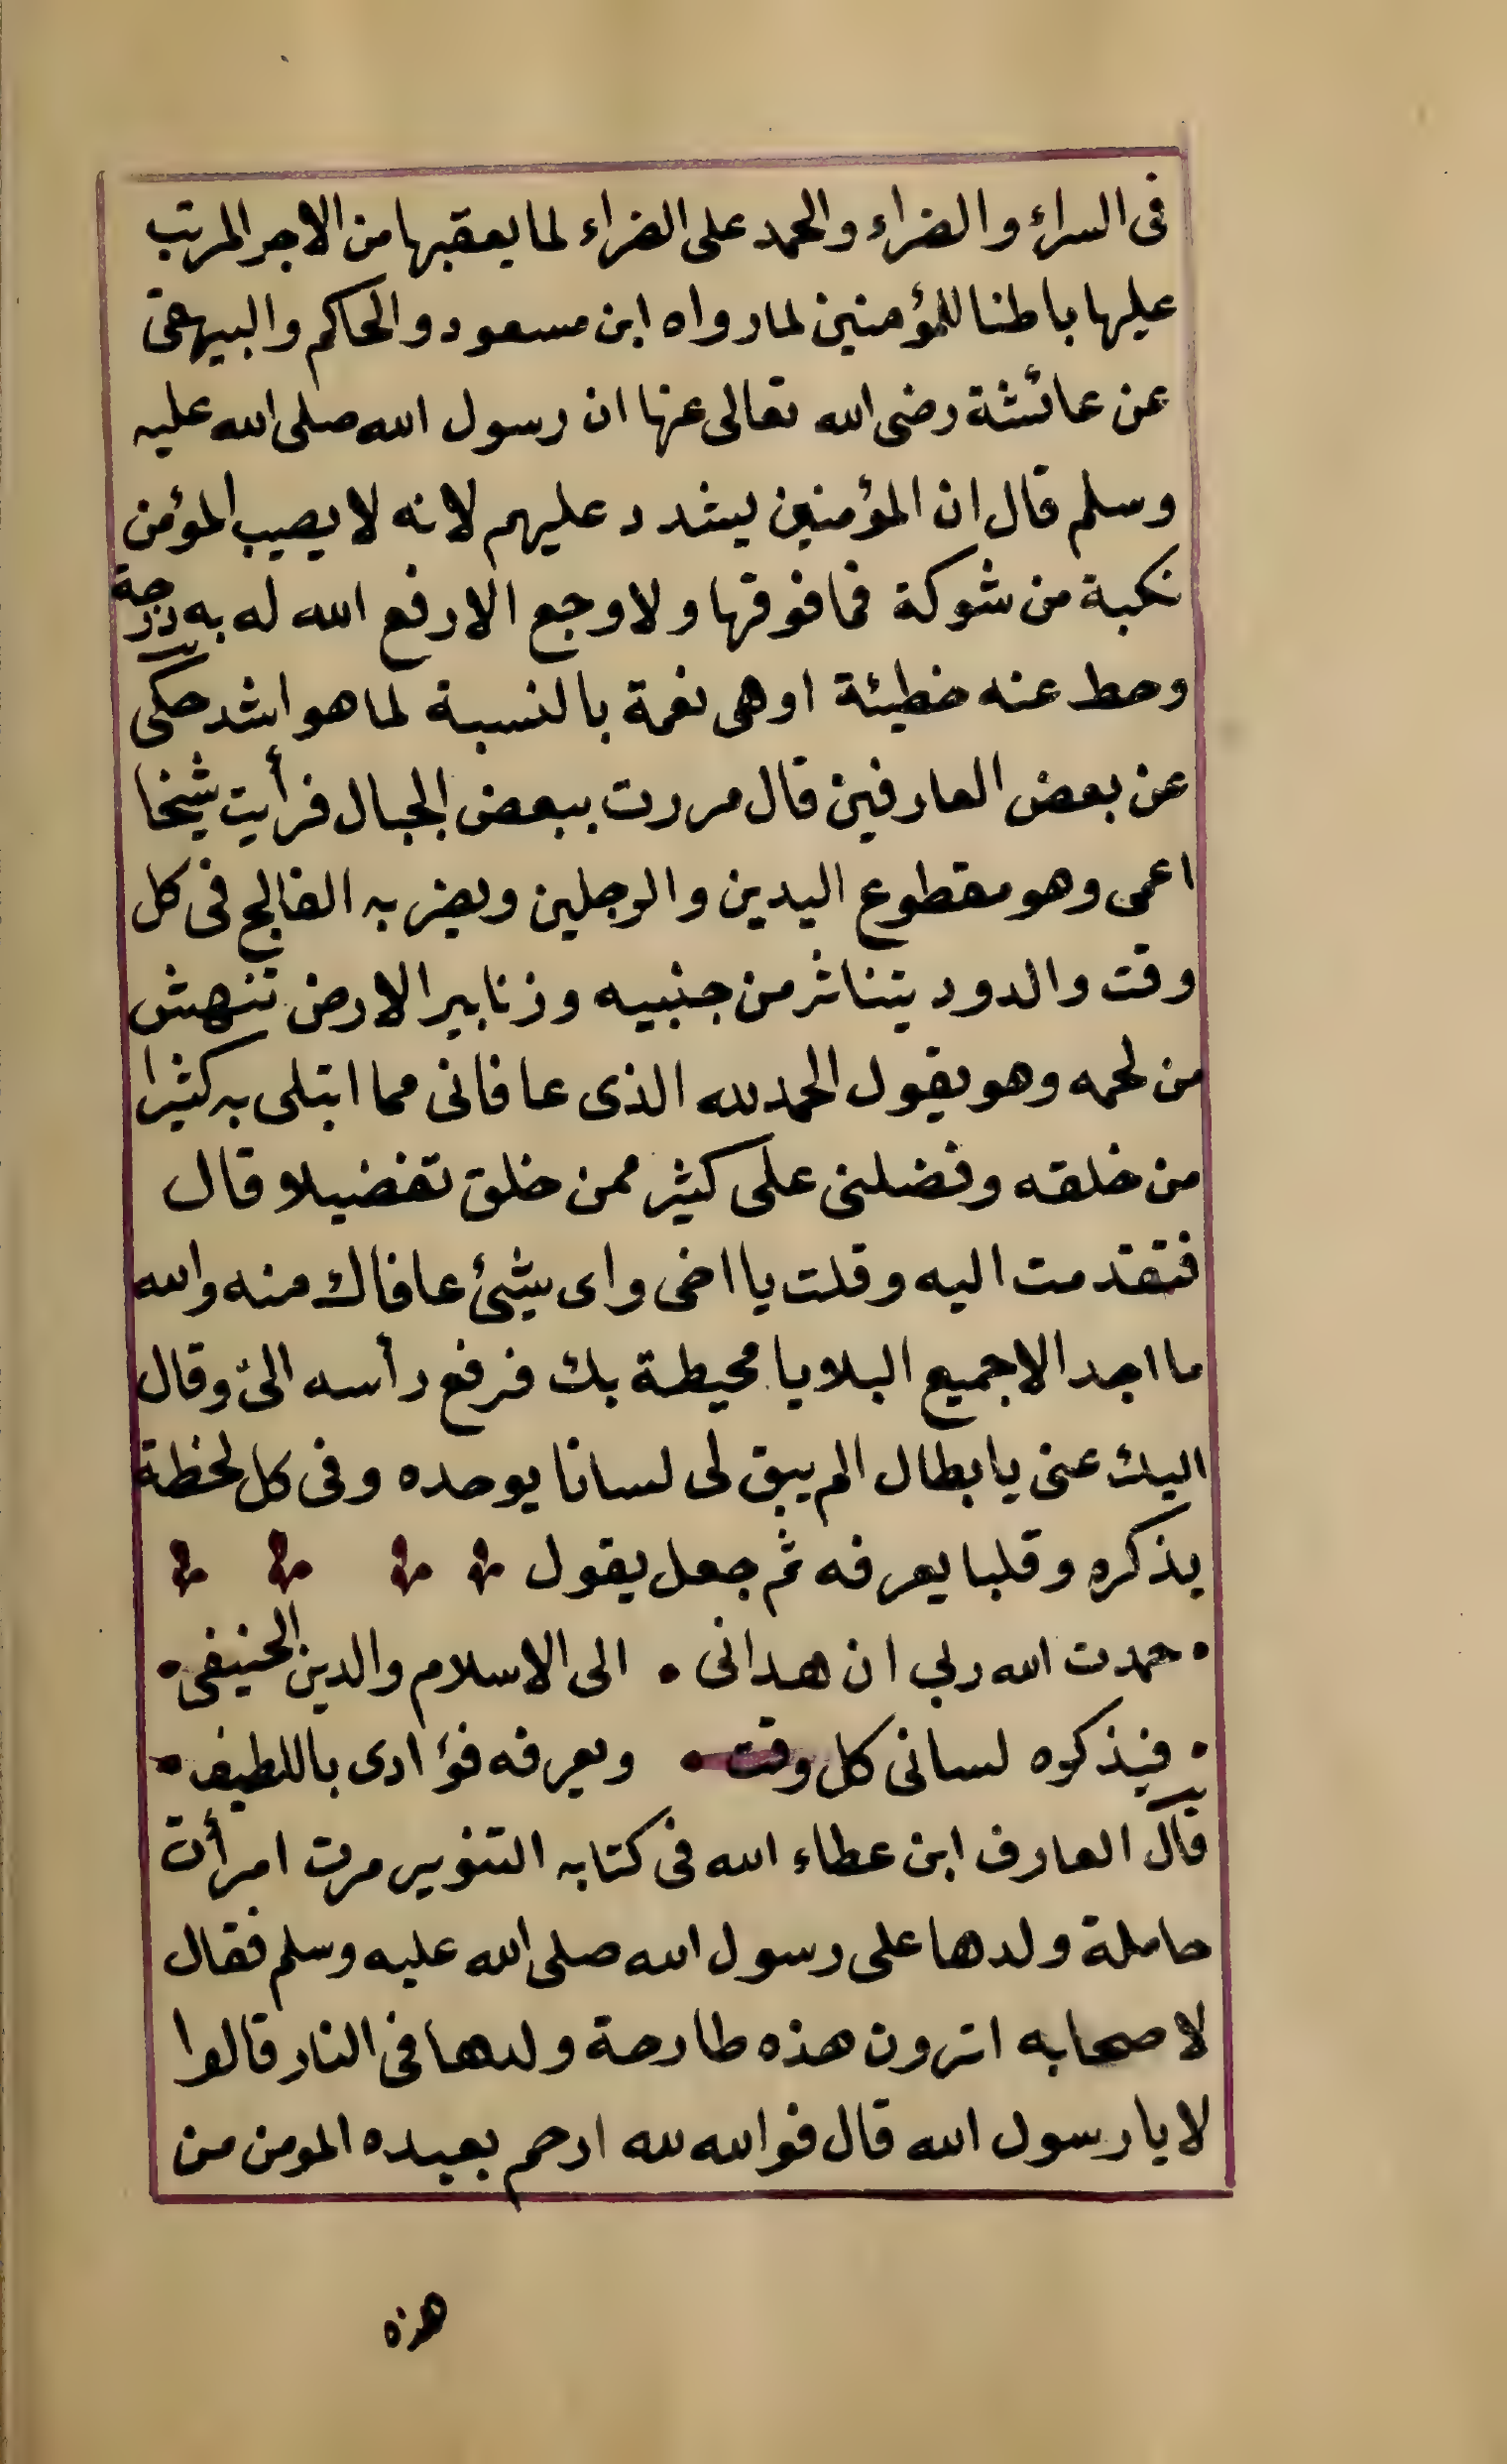 فى السراء والضراء والحمد على الضراء لما يعقبها من الاجر المرتب
عليها باطنا للمؤمنين لما رواه ابن مسعود والحاكم والبيهقى
عن عائشة رضى الله تعالى عنها ان رسول الله صلى الله عليه
وسلم قال ان المؤمنين يشدد عليهم لانه لا يصيب المؤمن
نكبة من شوكة فما فوقها ولا وجع الا رفع الله له به درجة
وحط عنه خطيئة او هى نعمة بالنسبة لما هو اشد حكى
عن بعض العارفين قال مررت ببعض الجبال فرأيت شيخا
اعمى وهو مقطوع اليدين والرجلين ويضربه الفالج فى كل
وقت والدود يتناثر من جنبيه وزنابير الارض تنهش
من لحمه وهو يقول الحمد لله الذى عافانى مما ابتلى به كثيرا
من خلقه وفضلنى على كثير ممن خلق تفضيلا قال
فتقدمت اليه وقلت يا اخى واى شيئ عافاك منه والله
ما اجد الا جميع البلايا محيطة بك فرفع رأسه الىّ وقال
اليك عنى يا بطال الم يبق لى لسانا يوحده وفى كل لحظة
يذكره وقلبا يعرفه ثم جعل يقول
• حمدت الله ربى ان هدانى • الى الاسلام والدين الحنيفى •
• فيذكره لسانى كل وقت • ويعرفه فؤادى باللطيف •
قال العارف ابن عطاء الله فى كتابه التنوير مرت امرأت
حاملة ولدها على رسول الله صلى الله عليه وسلم فقال
لاصحابه اترون هذه طارحة ولدها فى النار قالوا
لا يا رسول الله قال فوالله لله ارحم بعبده المومن من
هذه